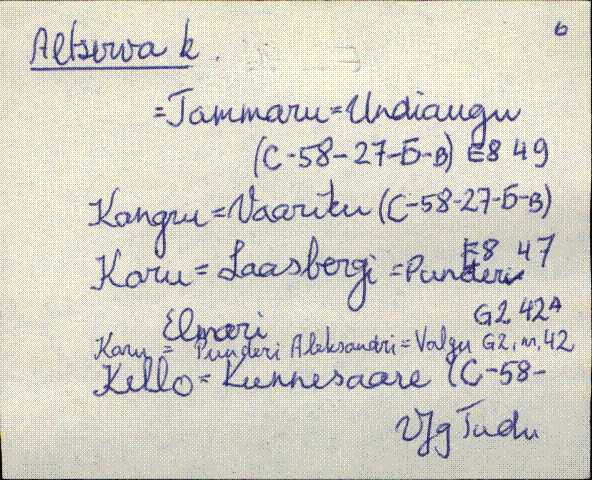 6
Altserva k.
=Tammaru=Undiaugu
(С-58-27-Б-в) E8 49
Kangru=Vaariku (С-58-27-Б-в)
E8 47
Karu=Laasbergi=Punderi
G2 42A
Elmari
Karu = Punderi Aleksandri=Valgu G2, m, 42
Kello=Kunnesaare (С-58-
Vfg Tudu